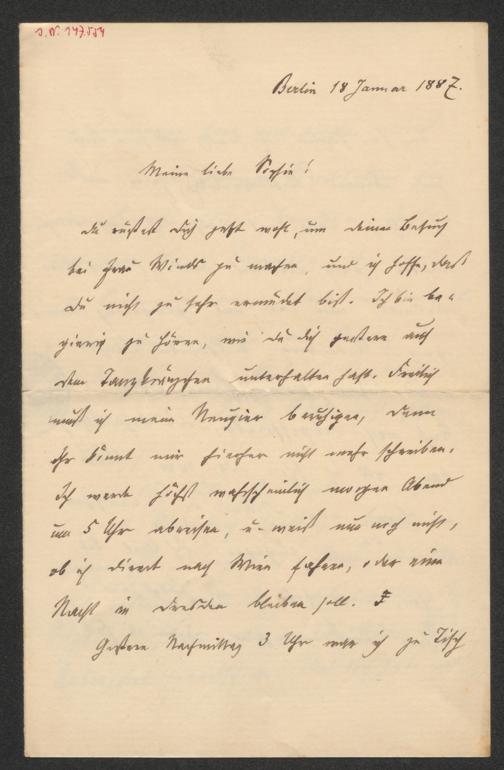 J. N. 147.554
Berlin 18 Januar 1887.
Meine liebe Sophie!
Du rüstest Dich jetzt wohl, um deinen Besuch
bei Frau Winds zu machen, und ich hoffe, daß
Du nicht zu sehr ermüdet bist. Ich bin be-
gierig zu hören, wie du dich gestern auf
dem Tanzkränzchen unterhalten hast. Freilich
muß ich meine Neugier beruhigen, denn
Ihr könnt mir hierher nicht mehr schreiben.
Ich werde höchst wahrscheinlich morgen Abend
um 5 Uhr abreisen, u. weiß nur noch nicht,
ob ich direct nach Wien fahren, oder eine
Nacht in Dresden bleiben soll.
Gestern Nachmittag 3 Uhr war ich zu Tisch